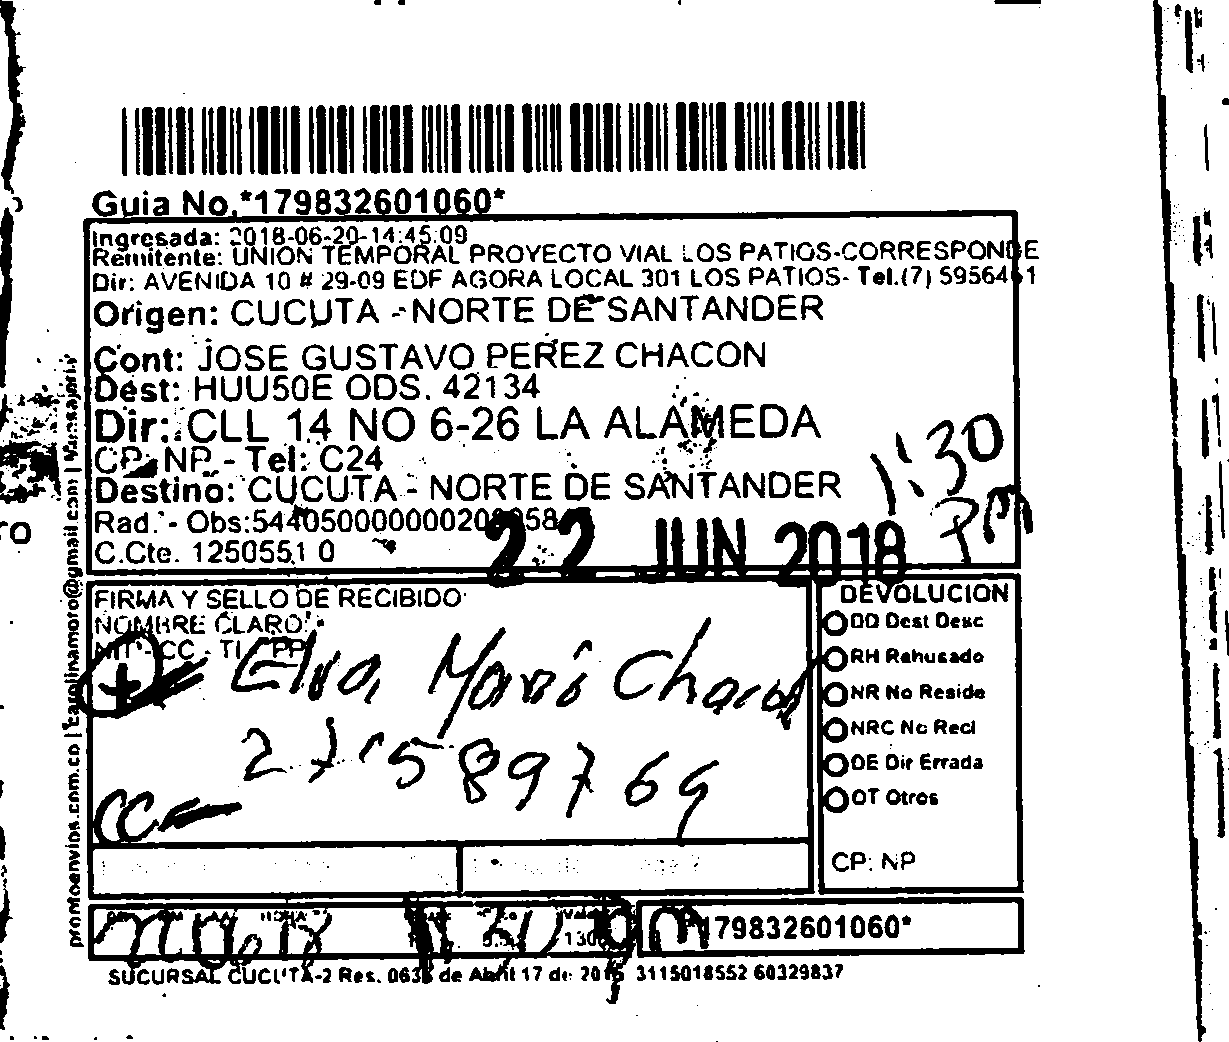 Guia No.*179832601060*
Ingresada: 2018-06-20-14:45:09
Remitente: UNION TEMPORAL PROYECTO VIAL LOS PATIOS-CORRESPONDE
Dir: AVENIDA 10 # 29-09 EDF AGORA LOCAL 301 LOS PATIOS- Tel.(7) 5956461
Origen: CUCUTA - NORTE DE SANTANDER
Cont: JOSE GUSTAVO PEREZ CHACON
Dest: HUU50E ODS. 42134
Dir: CLL 14 NO 6-26 LA ALAMEDA
CP: NP - Tel: C24
Destino: CUCUTA - NORTE DE SANTANDER
1:30 PM
Rad. - Obs:
C.Cte. 1250551 0
22 JUN 2018
FIRMA Y SELLO DE RECIBIDO
NOMBRE CLARO:
NIT - CC - TI - PP
Elva María Chacon
27'589769
CC
DEVOLUCION
DD Dest Desc
RH Rehusado
NR No Reside
NRC No Recl
DE Dir Errada
OT Otros
CP: NP
HORA
179832601060*
SUCURSAL CUCUTA-2 Res. de Abril 17 de 3115018552 60329837
prontoenvios.com.co | carolinamoro@gmail.com |